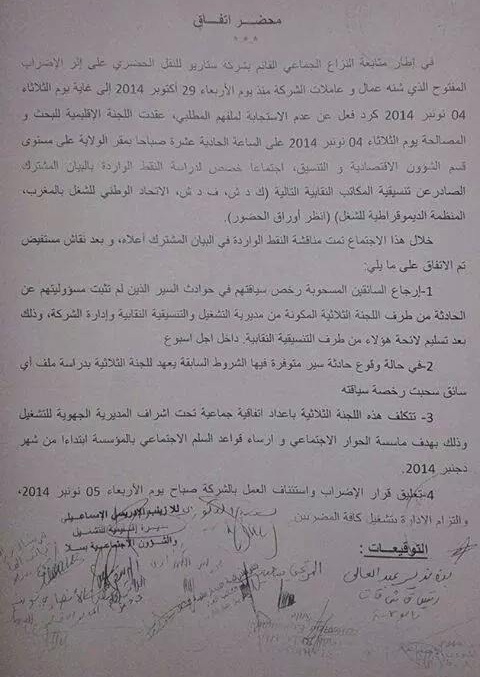 محضر اتفاق
***
في إطار متابعة النزاع الجماعي القائم بشركة ستاريو للنقل الحضري على إثر الإضراب
المفتوح الذي شنه عمال و عاملات الشركة منذ يوم الأربعاء 29 أكتوبر 2014 إلى غاية يوم الثلاثاء
04 نونبر 2014 كرد فعل عن عدم الاستجابة لملفهم المطلبي، عقدت اللجنة الإقليمية للبحث و
المصالحة يوم الثلاثاء 04 نونبر 2014 على الساعة الحادية عشرة صباحا بمقر الولاية على مستوى
قسم الشؤون الاقتصادية و التنسيق، اجتماعا خصص لدراسة النقط الواردة بالبيان المشترك
الصادر عن تنسيقية المكاتب النقابية التالية (ك د ش، ف د ش، الاتحاد الوطني للشغل بالمغرب،
المنظمة الديموقراطية للشغل) (انظر أوراق الحضور).
خلال هذا الاجتماع تمت مناقشة النقط الواردة في البيان المشترك أعلاه، و بعد نقاش مستفيض
تم الاتفاق على ما يلي:
1-إرجاع السائقين المسحوبة رخص سياقتهم في حوادث السير الذين لم تثبت مسؤوليتهم عن
الحادثة من طرف اللجنة الثلاثية المكونة من مديرية التشغيل والتنسيقية النقابية وإدارة الشركة، وذلك
بعد تسليم لائحة هؤلاء من طرف التنسيقية النقابية. داخل اجل اسبوع
2-في حالة وقوع حادثة سير متوفرة فيها الشروط السابقة يعهد للجنة الثلاثية بدراسة ملف أي
سائق سحبت رخصة سياقته
3- تتكلف هذه اللجنة الثلاثية باعداد اتفاقية جماعية تحت اشراف المديرية الجهوية للتشغيل
وذلك بهدف ماسسة الحوار الاجتماعي و ارساء قواعد السلم الاجتماعي بالمؤسسة ابتداءا من شهر
دجنبر 2014.
4-تعليق قرار الإضراب واستئناف العمل بالشركة صباح يوم الأربعاء 05 نونبر 2014،
والتزام الادارة بتشغيل كافة المضربين
التوقيعات :
والشؤون الاجتماعية بسلا
عبد العالي